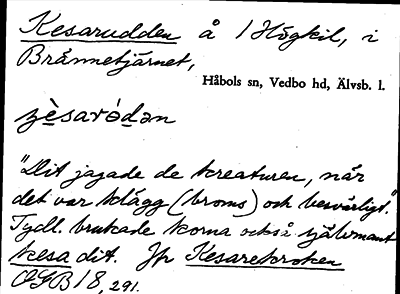 Kesarudden å 1 Högkil, i
Brånnetjärnet,
Håbols sn, Vedbo hd, Älvsb. l.
"Dit jagade de kreaturen, när
det var klägg (broms) och besvärligt."
Tydl. brukade korna också självmant
kesa dit. Jfr Kesarekroken
OGB 18, 291.